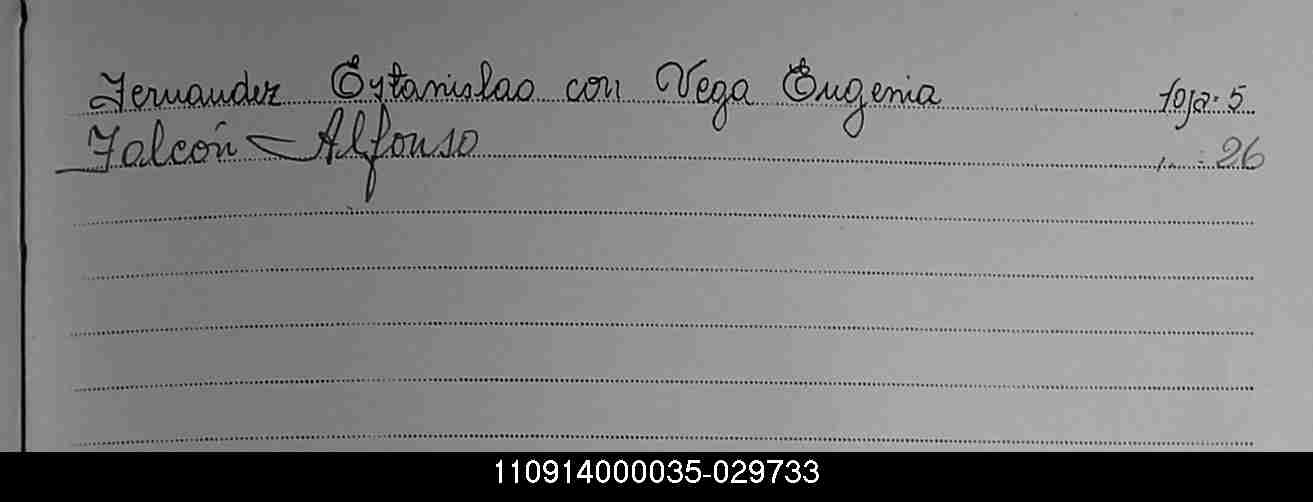 Fernandez Estanislao con Vega Eugenia foja: 5
Falcón - Alfonso ,, : 26
110914000035-029733